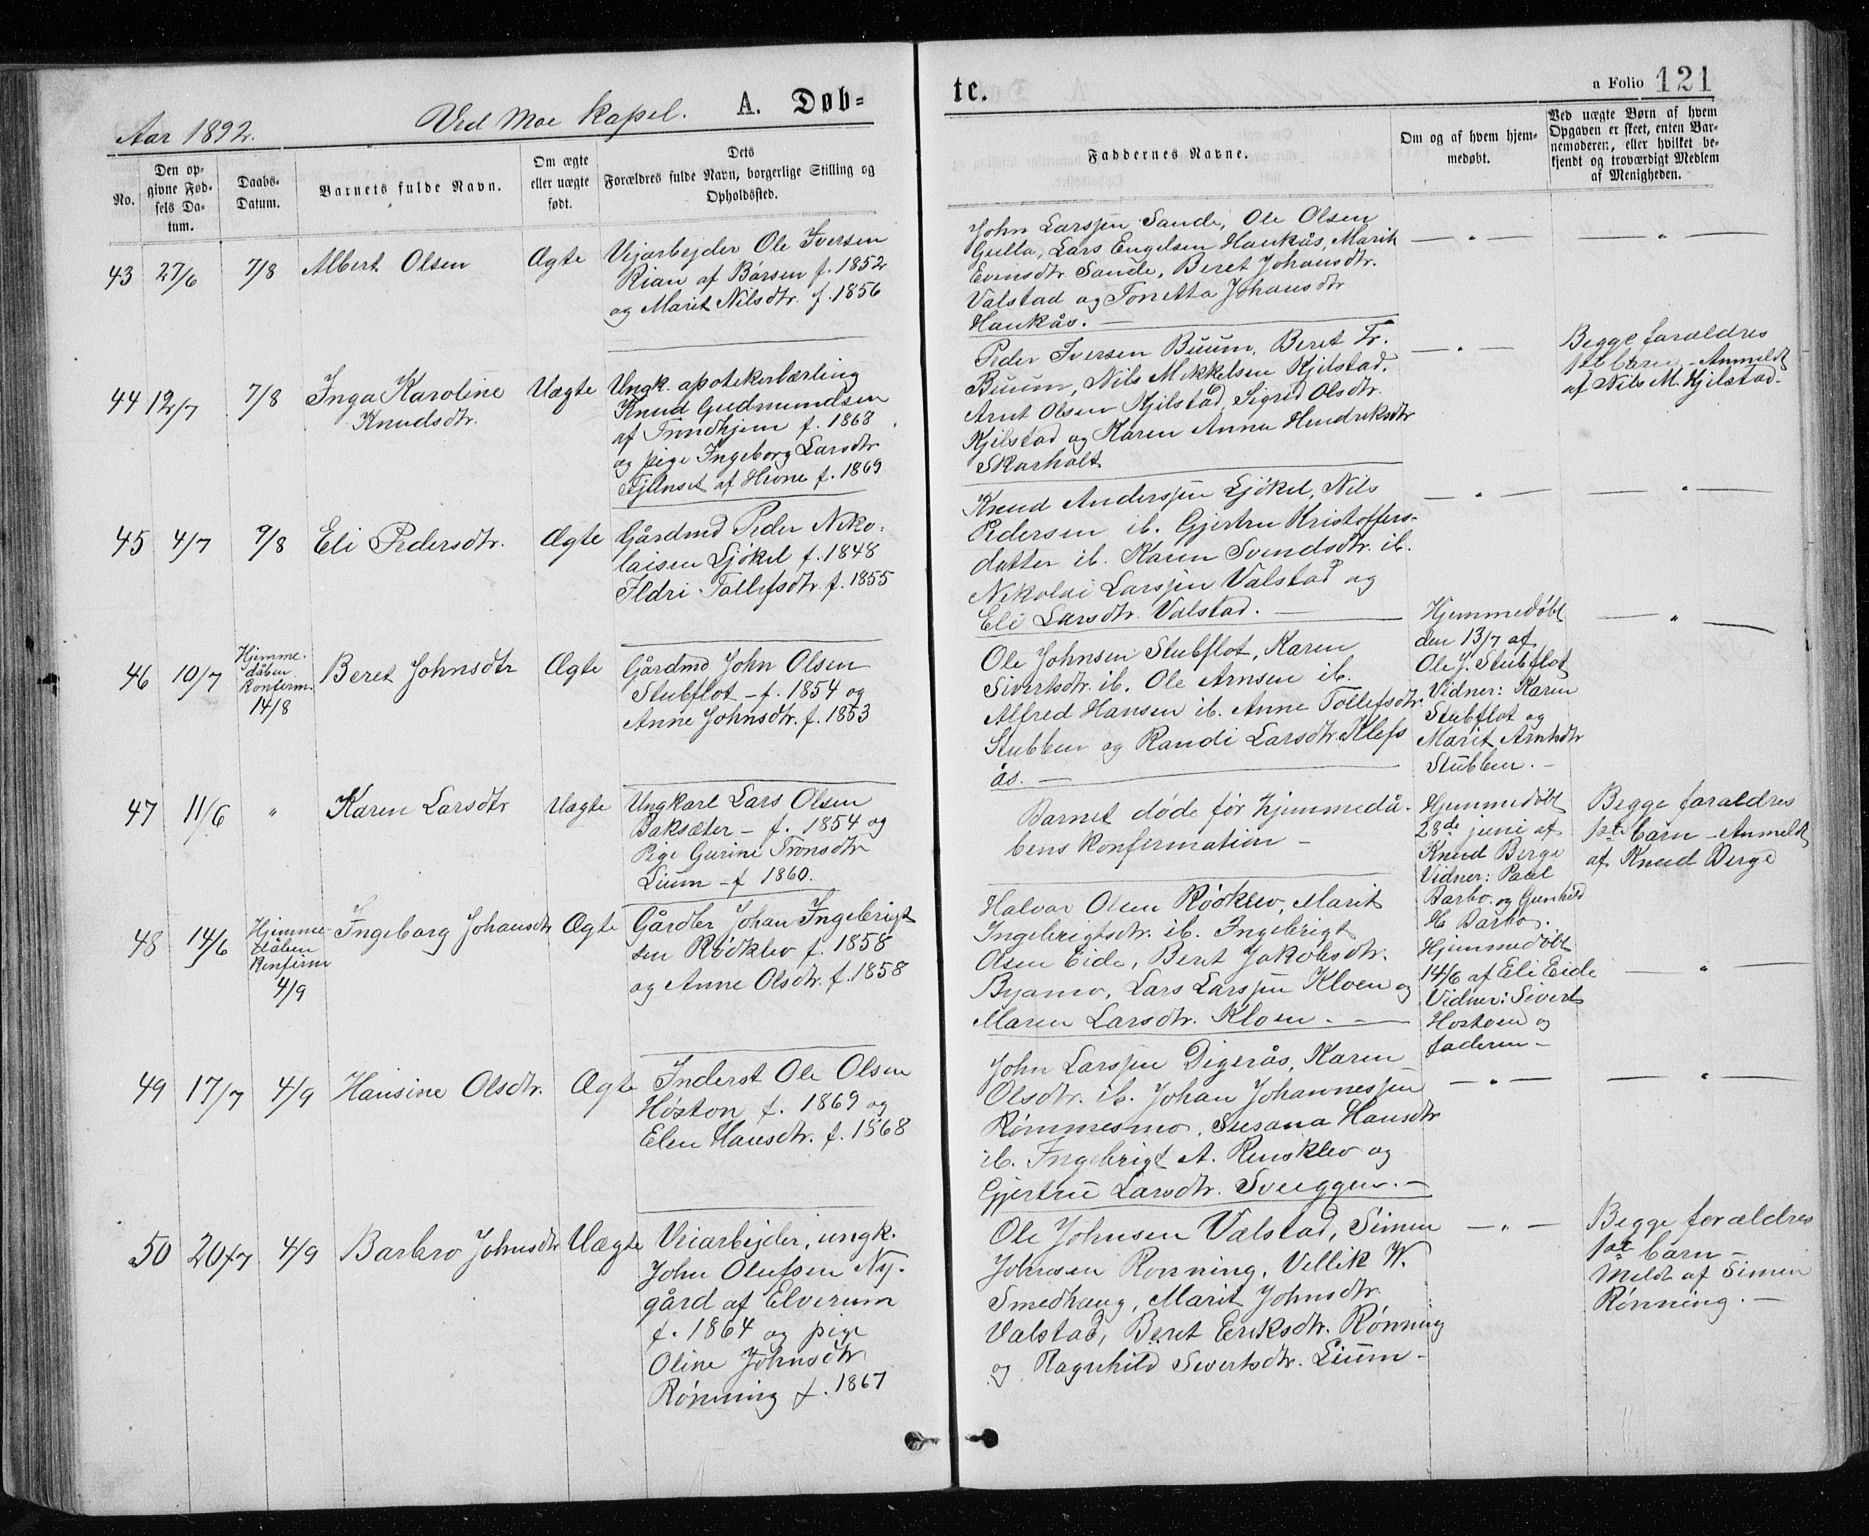 Aar 1892.
Ved Moe kapel.
A. Døb-
te.
a Folio 121
No.
Den op-
givne Fød-
sels Da-
tum.
Daabs-
Datum.
Barnets fulde Navn.
Om ægte
eller uægte
født.
Dets
Forældres fulde Navn, borgerlige Stilling og
Opholdssted.
Faddernes Navne.
Om og af hvem hjem-
medøbt.
Ved uægte Børn af hvem
Opgaven er skeet, enten Bar-
nemoderen, eller hvilket be-
kjendt og troværdigt Medlem
af Menigheden.
43 27/6 7/8 Albert Olsen Ægte
Vejarbejder Ole Iversen
Rian af Børsen f. 1852
og Marit Nilsdtr. f. 1856
John Larssen Sande, Ole Olsen
Gulla, Lars Engelsen Haukås, Marit
Evensdtr. Sande, Beret Johansdtr.
Valstad og Tonetta Johansdtr
Haukås. —
— " —
— " —
44 12/7 7/8 Inga Karoline
Knudsdtr.
Uægte
Ungk. apotekerlærling
Knud Gudmundsen
af Trondhjem f. 1868
og pige Ingeborg Larsdtr
af Hevne f. 1869
Peder Iversen Buum, Beret Fr.
Buum, Nils Mikkelsen Kjelstad,
Arnt Olsen Kjelstad, Sigrid Olsdtr.
Kjelstad og Karen Anna Hendriksdtr
Skarholt
— " —
Begge forældres
1ste barn - Anmeldt
af Nils M. Kjelstad.
45 4/7 9/8 Eli Pedersdtr. Ægte
Gårdmd Peder Niko-
laisen Ljøkel f. 1848
Ildri Tollefsdtr f. 1855
Knud Anderssen Ljøkel, Nils
Pedersen ib. Gjertru Kristoffers-
datter ib. Karen Svendsdtr. ib.
Nikolai Larssen Valstad og
Eli Larsdtr. Valstad. —
— " —
— " —
46 10/7
Hjemme-
dåben
Konferm.
14/8
Beret Johnsdtr Ægte
Gårdmd John Olsen
Stubflot - f. 1854 og
Anne Johnsdtr. f. 1853
Ole Johnsen Stubflot, Karen
Sivertsdtr. ib. Ole Arnsen ib.
Alfred Hansen ib. Anne Tollefsdtr.
Stubben og Randi Larsdtr. Klefs
ås. —
Hjemmedøbt
den 13/7 af
Ole J. Stubflot
Vidner: Karen
Stubflot og
Marit Arntsdtr
Stubben. -
— " —
47 11/6 " Karen Larsdtr Uægte
Ungkarl Lars Olsen
Baksæter - f. 1854 og
Pige Gurine Tronsdtr
Lium - f 1860.
Barnet døde før hjemmedå-
bens konfermation -
Hjemmedøbt
28de juni af
Knud Berge
Vidner: Paul
Barbo. og Gunhild
H. Barbo.
Begge foraldres
1ste barn - Anmeldt
af Knud Berge
48 14/6
Hjemme
dåben
Konferm
4/9
Ingeborg Johansdtr Ægte
Gårdbr Johan Ingebrigt
sen Rødklev f. 1858
og Anne Olsdtr. f. 1858
Halvor Olsen Rødklev, Marit
Ingebrigtsdtr. ib. Ingebrigt
Olsen Eide, Beret Jakobsdtr.
Byamo, Lars Larssen Kloen og
Maren Larsdtr. Kloen. —
Hjemmedøbt
14/6 af Eli Eide
Vidner: Sivert
Hostoen og
faderen -
— " —
49 17/7 4/9 Hansine Olsdtr. Ægte
Inderst Ole Olsen
Høston f. 1869 og
Elen Hansdtr. f. 1868
John Larssen Digerås, Karen
Olsdtr. ib. Johan Johannessen
Rømmesmo, Susana Hansdtr
ib. Ingebrigt A. Rensklev og
Gjertru Larsdtr. Sveggen. -
— " —
— " —
50 20/7 4/9 Barbro Johnsdtr Uægte
Veiarbejder, ungk.
John Olufsen Ny-
gård af Elverum
f. 1864 og pige
Oline Johnsdtr
Rønning f. 1867
Ole Johnsen Valstad, Simen
Johnsen Rønning, Vellik W.
Smedhaug, Marit Johnsdtr.
Valstad, Beret Eriksdtr. Rønning
og Ragnhild Sivertsdtr. Lium -
— " —
Begge forældres
1ste barn -
Meldt af Simen
Rønning. -